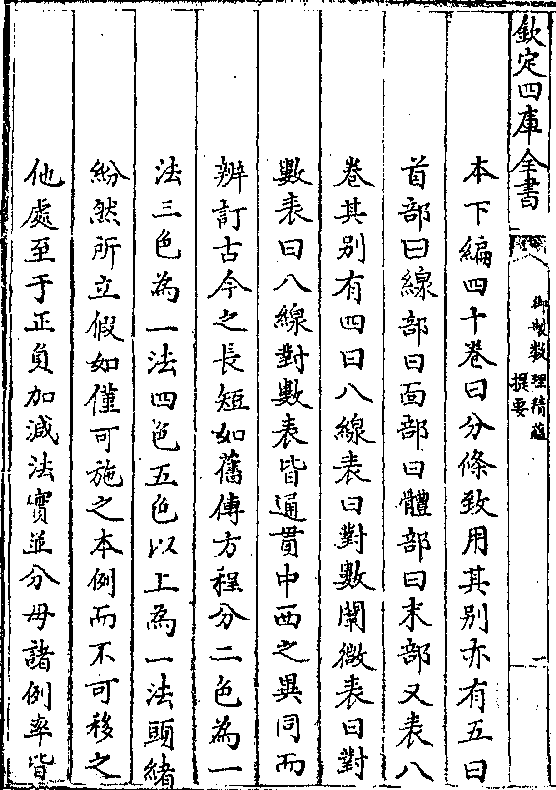 欽定四庫全書
御製數理精蘊
提要
一
本下編四十卷曰分條致用其别亦有五曰
首部曰線部曰面部曰體部曰末部又表八
卷其别有四曰八線表曰對數闡微表曰對
數表曰八線對數表皆通貫中西之異同而
辨訂古今之長短如舊傳方程分二色為一
法三色為一法四色五色以上為一法頭緒
紛然所立假如僅可施之本例而不可移之
他處至于正負加減法實並分母諸例率皆